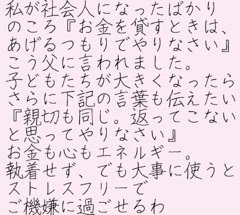 私が社会人になったばかり
のころ『お金を貸すときは、
あげるつもりでやりなさい』
こう父に言われました。
子どもたちが大きくなったら
さらに下記の言葉も伝えたい
『親切も同じ。返ってこない
と思ってやりなさい』
お金も心もエネルギー。
執着せず、でも大事に使うと
ストレスフリーで
ご機嫌に過ごせるわ